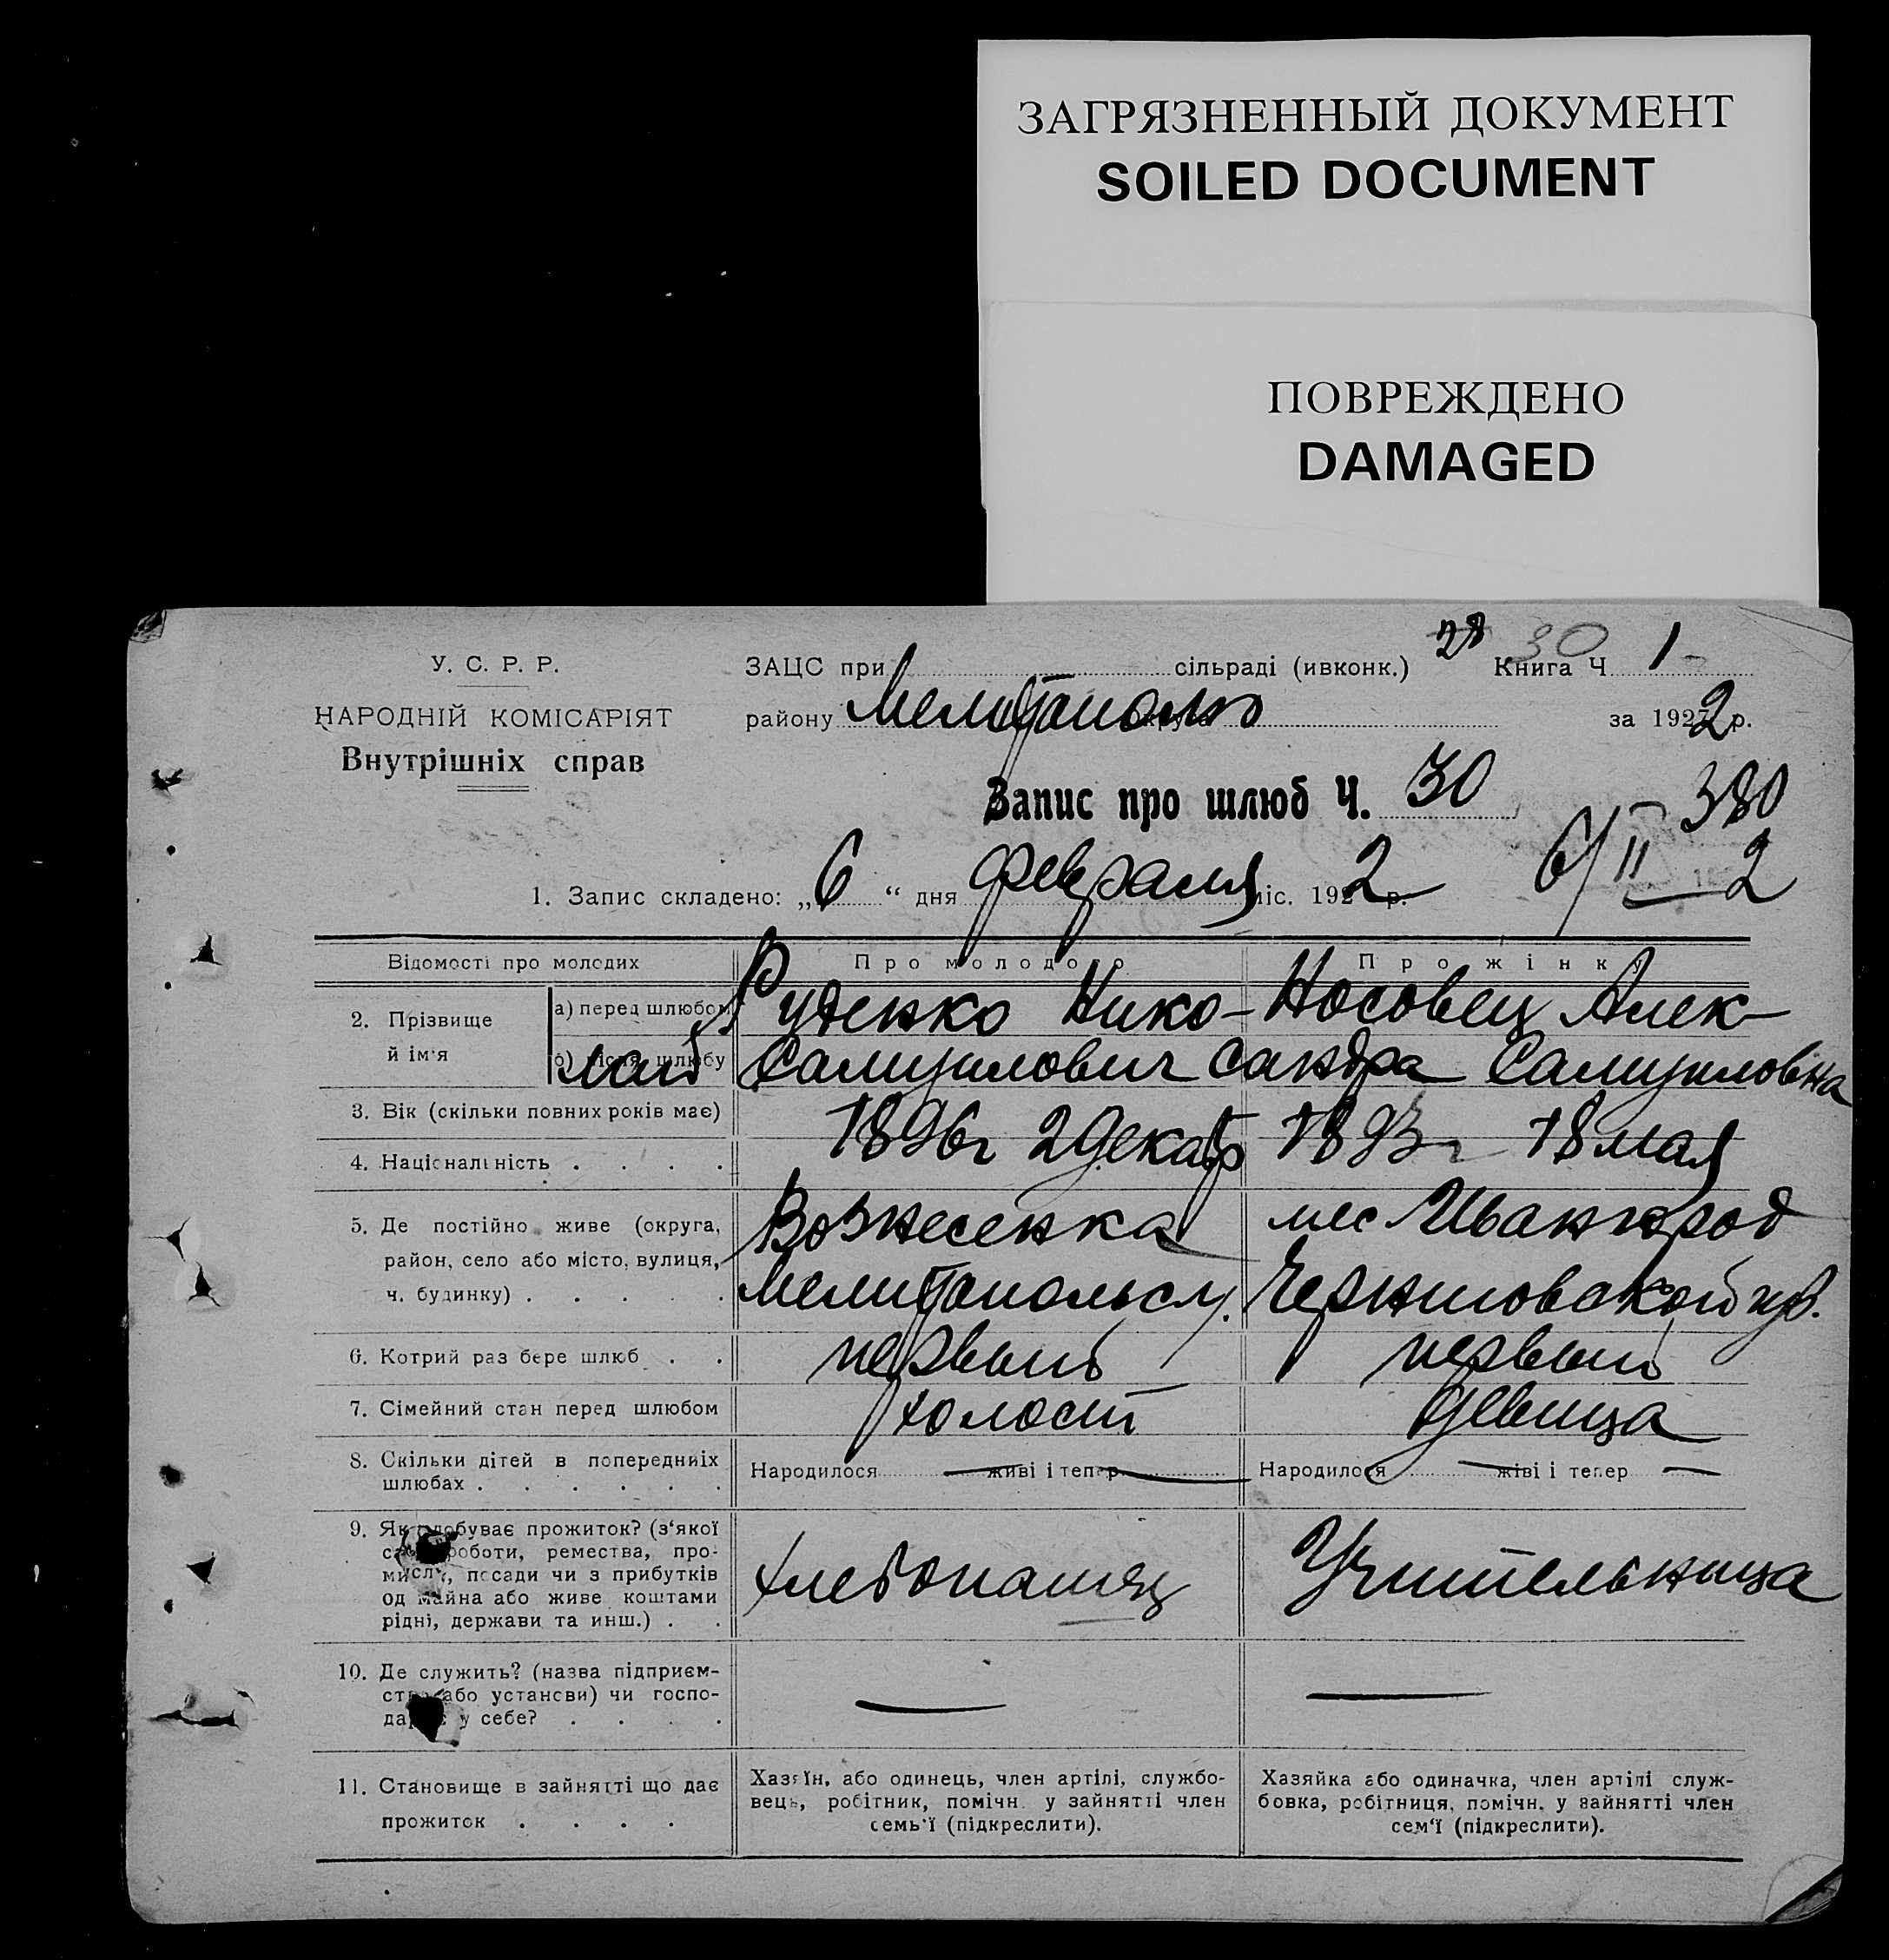 ЗАГРЯЗНЕННЫЙ ДОКУМЕНТ
SOILED DOCUMENT
ПОВРЕЖДЕНО
DAMAGED
28 30
У. С. Р. Р.
НАРОДНІЙ КОМІСАРІЯТ
Внутрішніх справ
ЗАЦС при сільраді (ивконк.) Книга Ч 1
району Мелитополь за 1922 р.
Запис про шлюб Ч. 30
380
1. Запис складено: „ 6 “ дня февраля міс. 1922 р.
6/II 2
Відомості про молодих Про молодого Про жінку
2. Прізвище й ім'я
а) перед шлюбом Руденко Нико- Носовец Алек-
б) після шлюбу лай Самуилович сандра Самуиловна
3. Вік (скільки повних років має) 1896г 2 декаб 1893г 18 мая
4. Національність . . . .
5. Де постійно живе (округа, Вознесенка мес Иванград
район, село або місто, вулиця, Мелитопольск у. Черниговской губ.
ч. будинку) . . . . .
6. Котрий раз бере шлюб . . первый первый
7. Сімейний стан перед шлюбом холост девица
8. Скільки дітей в попередніх Народилося — живі і тепер — Народилося — живі і тепер —
шлюбах . . . . . .
9. Як здобуває прожиток? (з'якої
роботи, ремества, про-
мислу, посади чи з прибутків хлебопашец Учительница
од майна або живе коштами
рідні, держави та инш.) . .
10. Де служить? (назва підприєм-
ства або установи) чи госпо- — —
дарює у себе? . . . .
11. Становище в зайнятті що дає
прожиток . . . .
Хазяїн, або одинець, член артілі, службо-
вець, робітник, помічн. у зайнятті член
семь'ї (підкреслити).
Хазяйка або одиначка, член артілі служ-
бовка, робітниця, помічн. у зайнятті член
сем'ї (підкреслити).